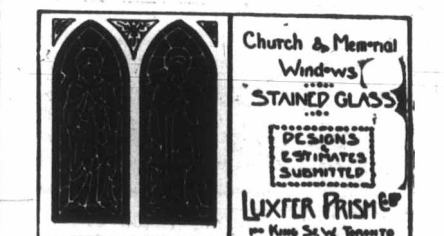 Church & Memorial
Windows
STAINED GLASS
DESIGNS
&
ESTIMATES
SUBMITTED
LUXFER PRISM Co
King St. W. Toronto